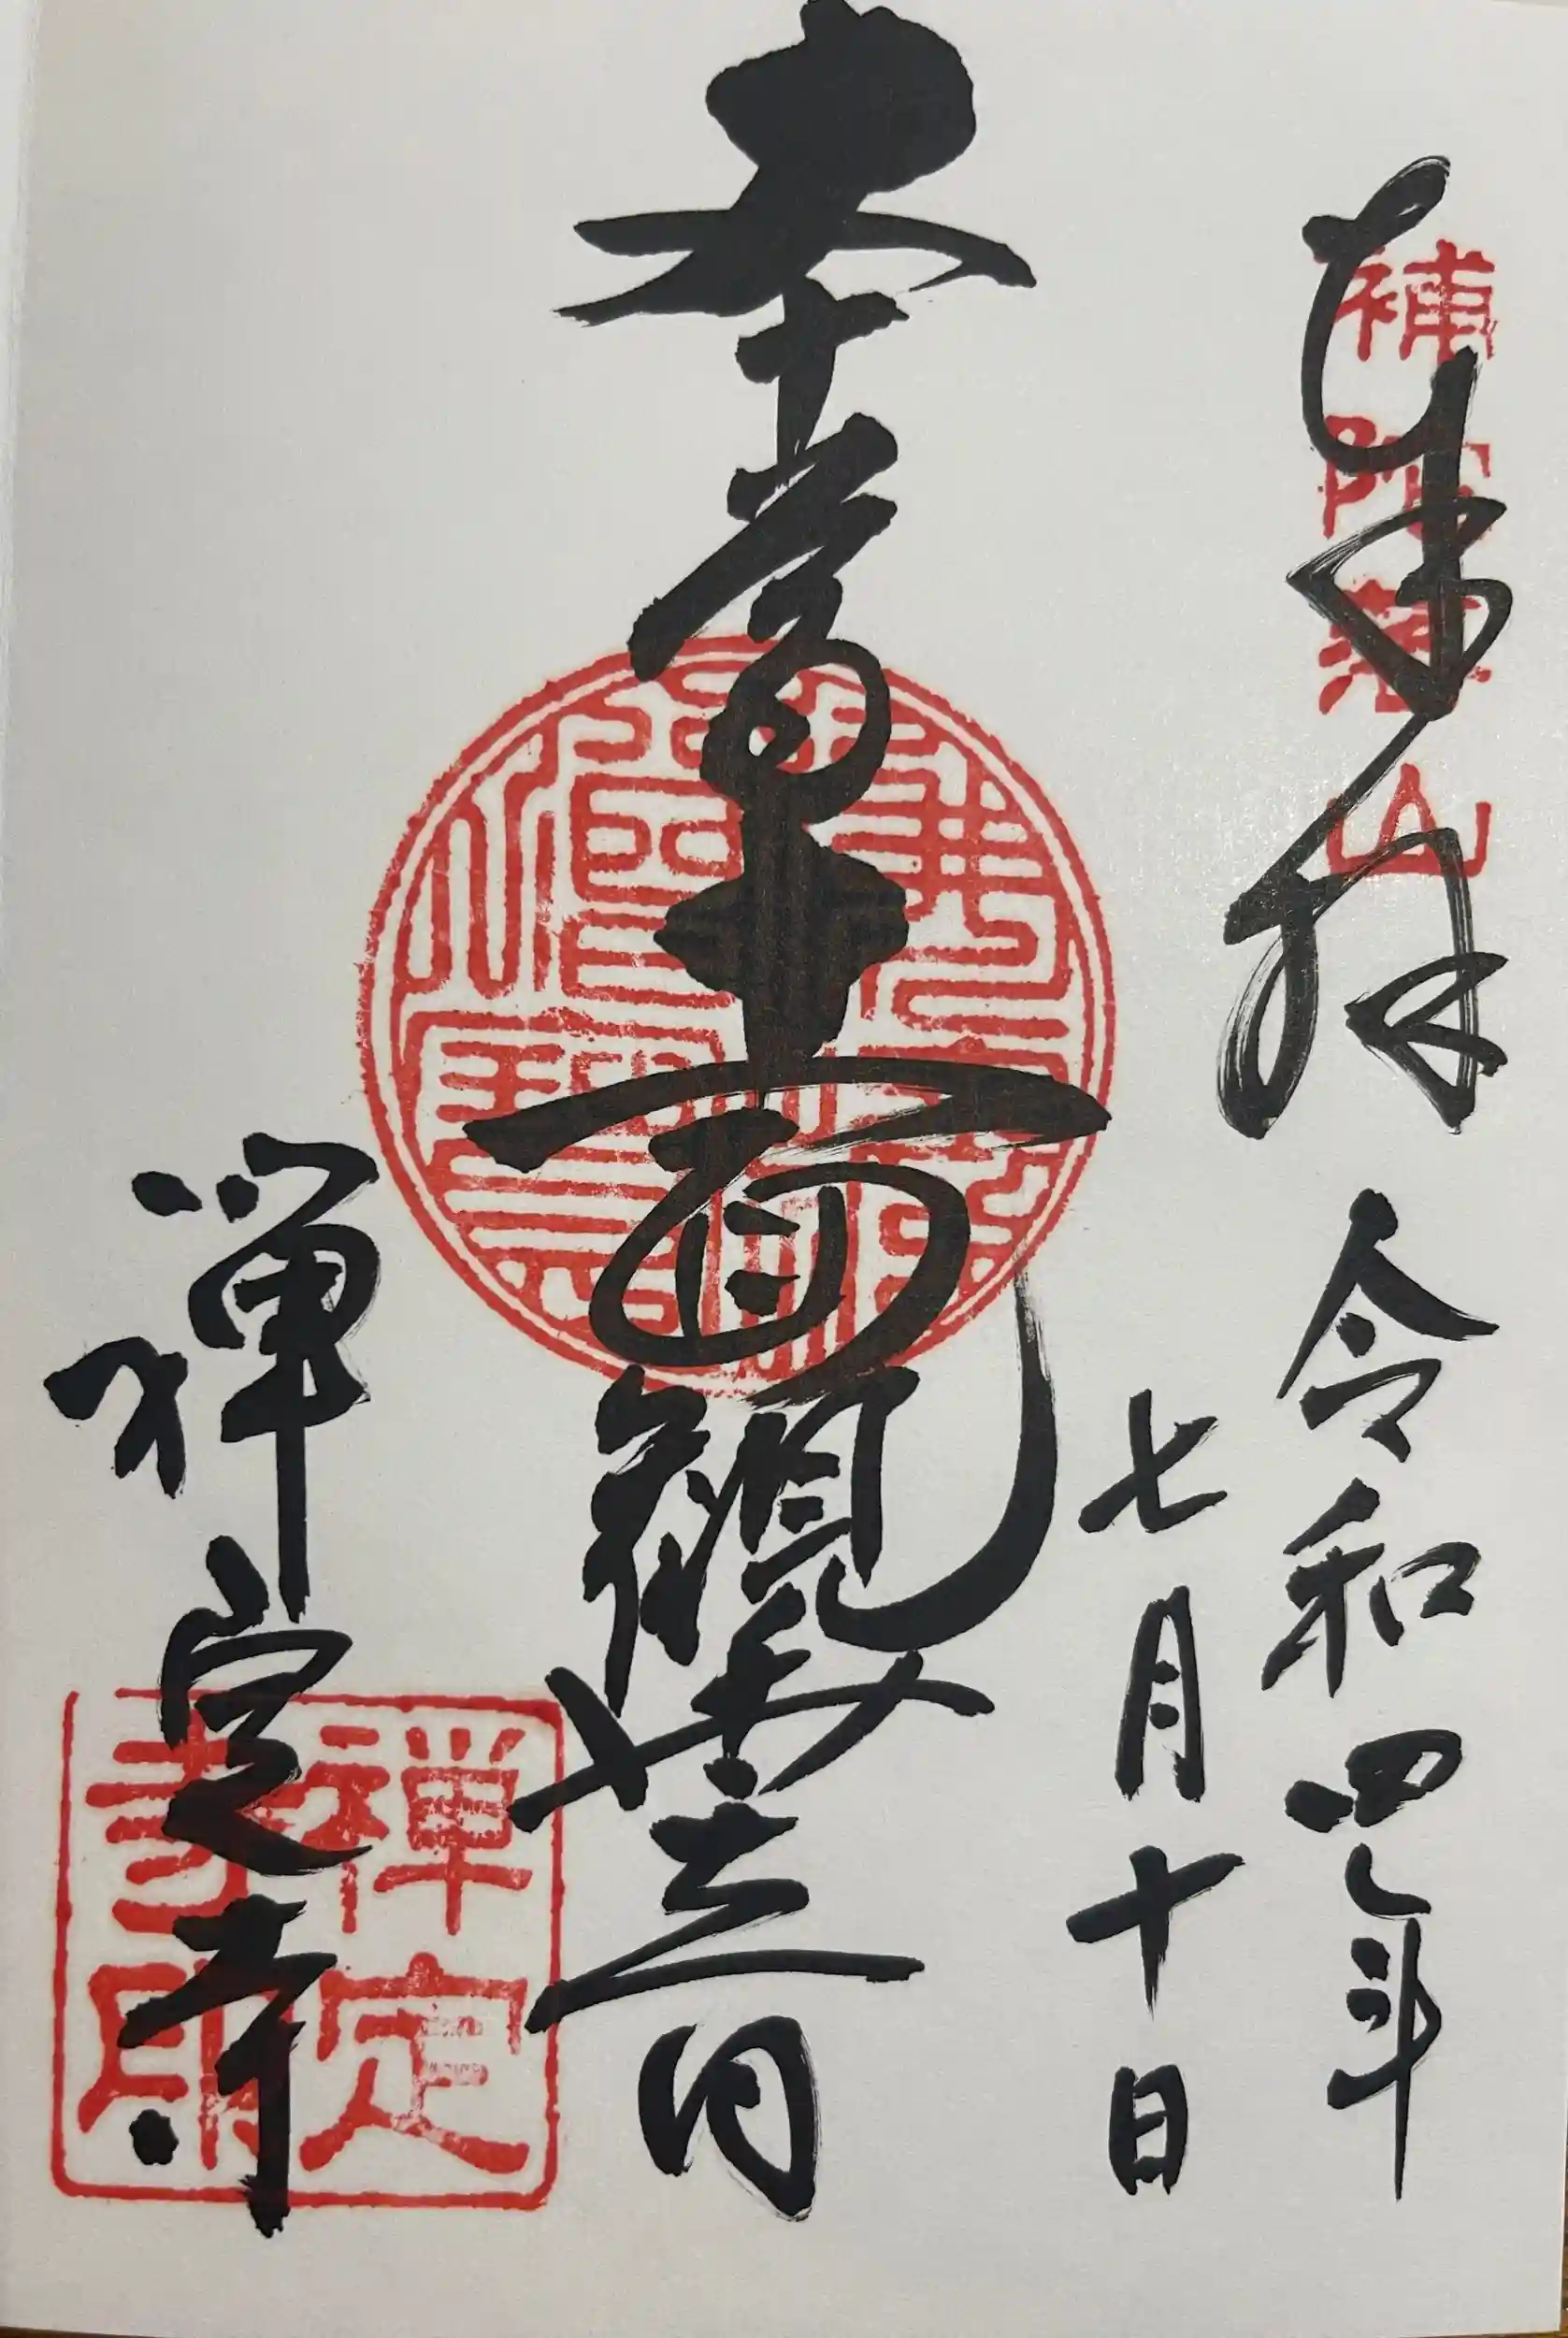 補陀落山
奉拝 令和四年
七月十日
本尊十一面観世音
禅定寺
禅定
寺印